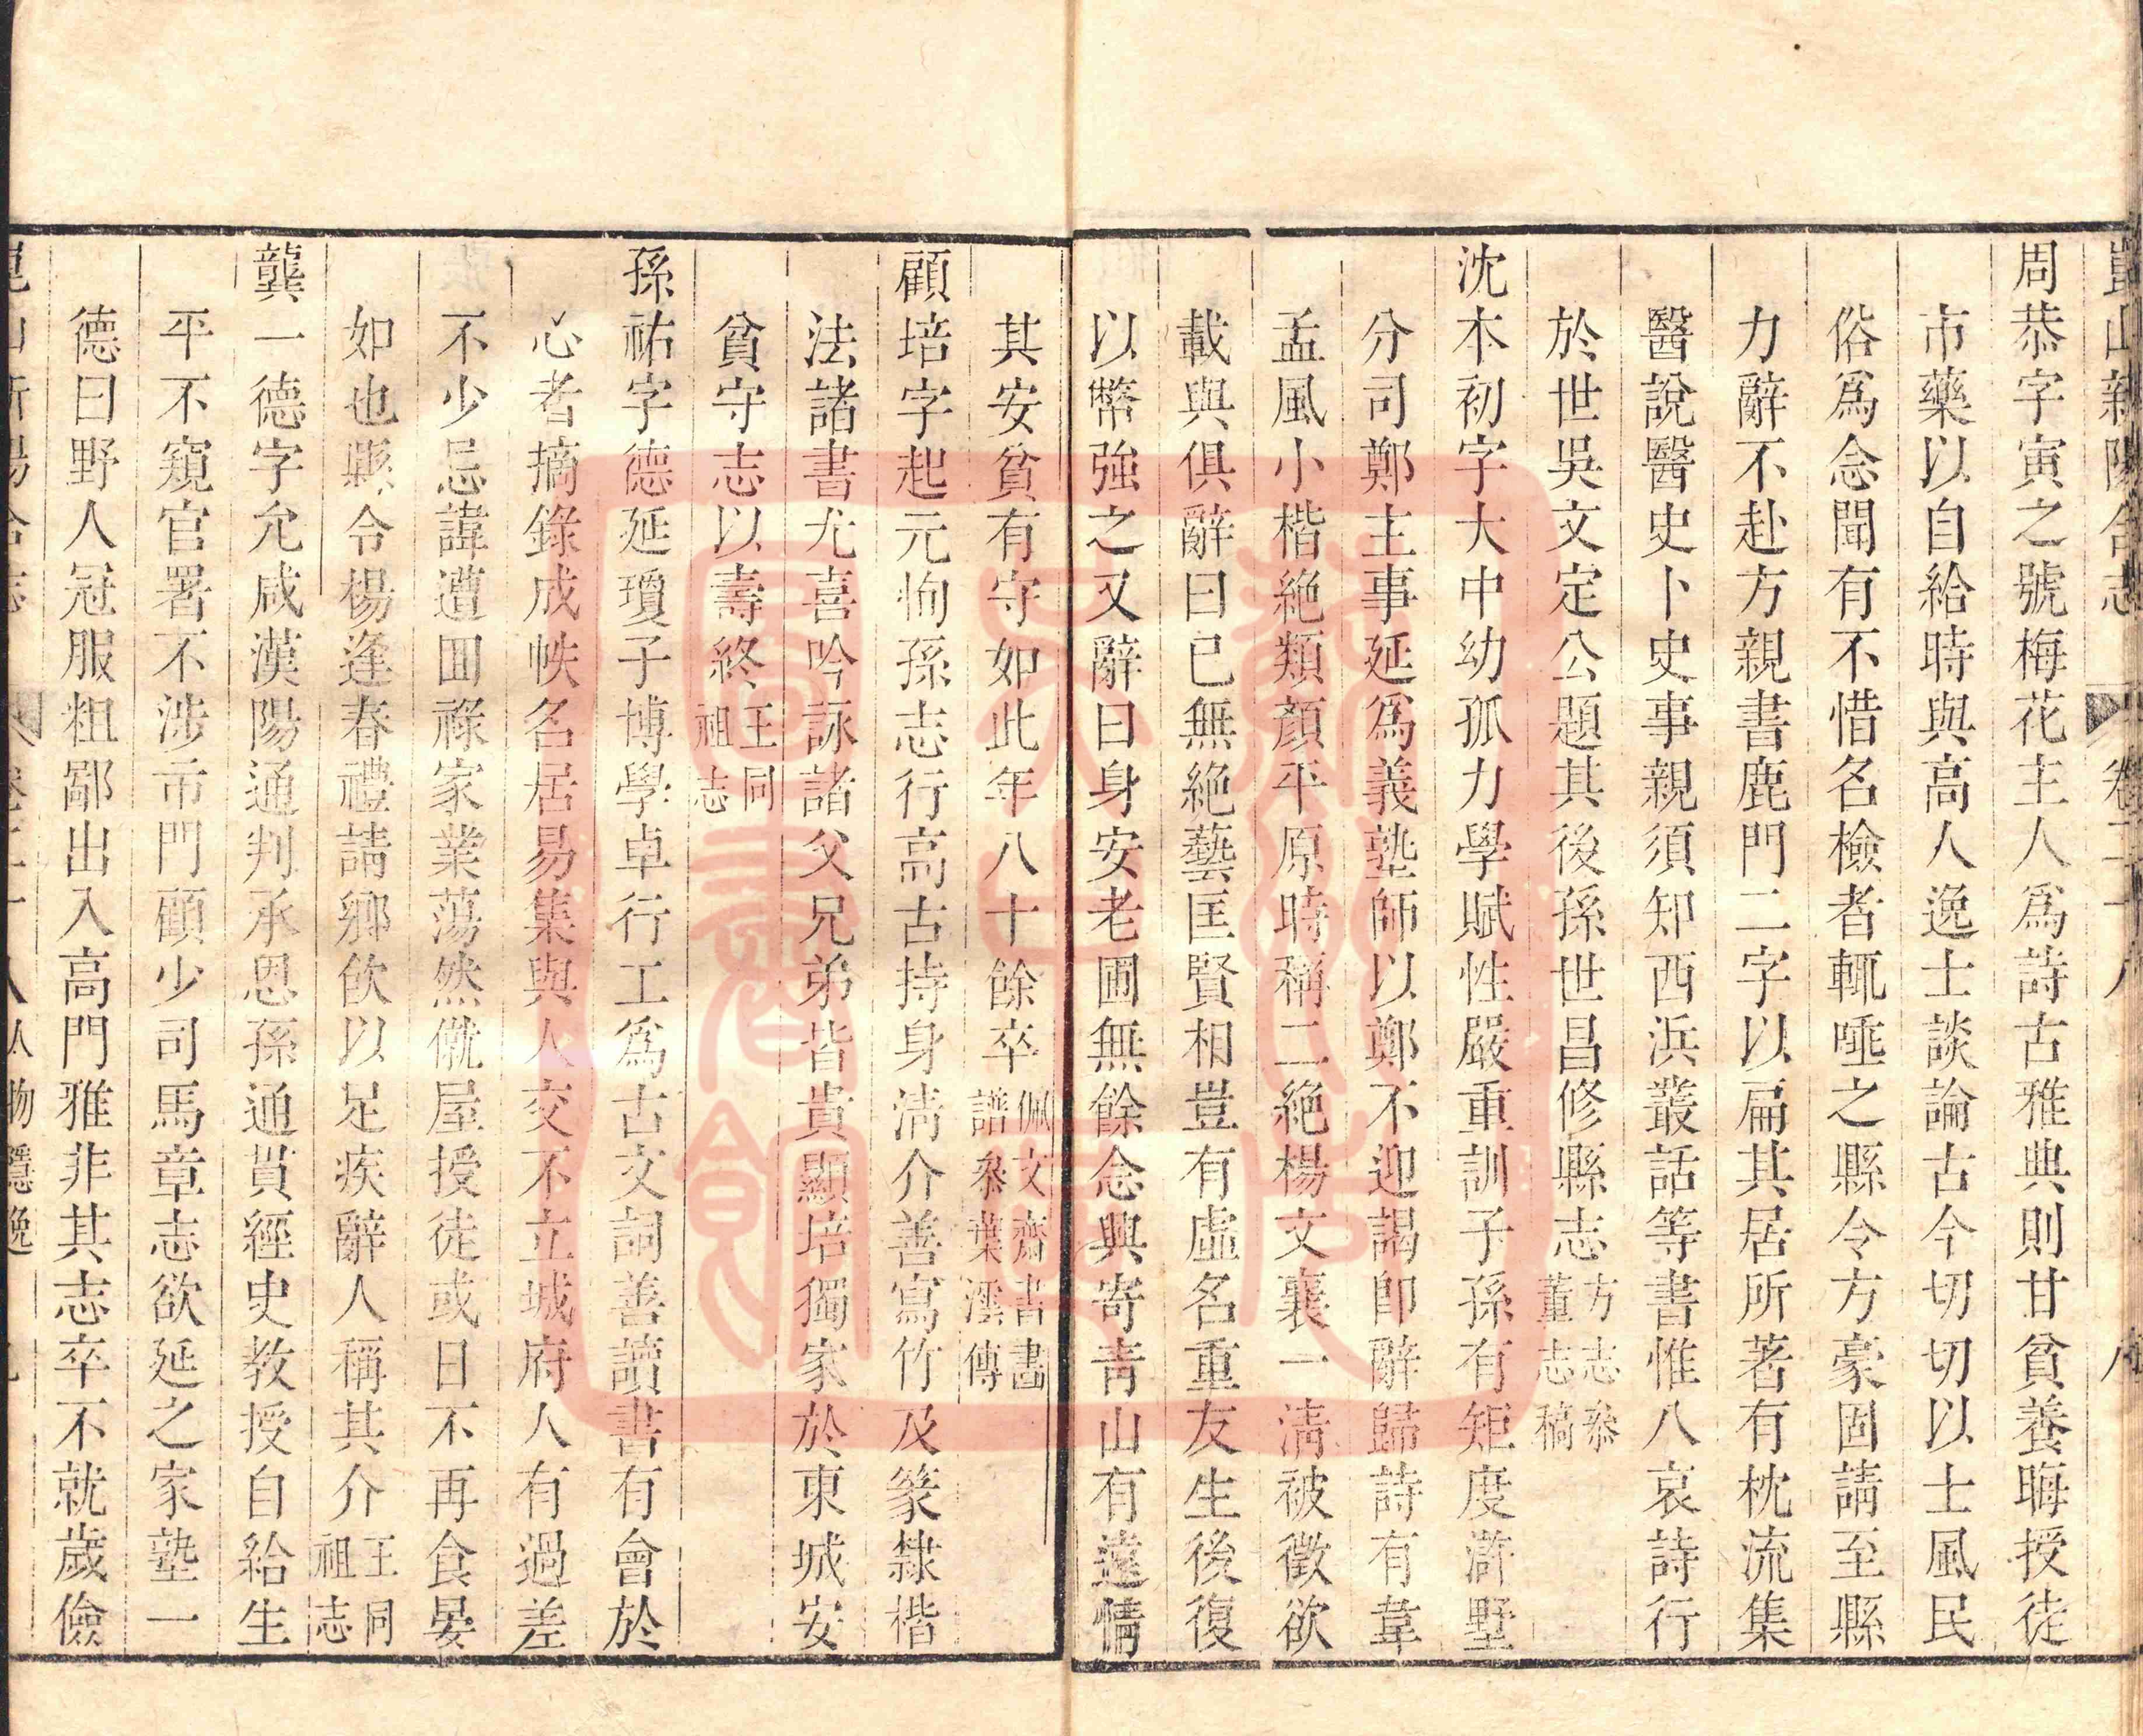 崑山新陽合志 卷二十八 八
周恭字寅之號梅花主人爲詩古雅典則甘貧養晦授徒
市藥以自給時與高人逸士談論古今切切以士風民
俗爲念聞有不惜名檢者輒唾之縣令方豪固請至縣
力辭不赴方親書鹿門二字以扁其居所著有枕流集
醫說醫史卜史事親須知西浜叢話等書惟八哀詩行
於世吳文定公題其後孫世昌修縣志方志叅董志稿
沈本初字大中幼孤力學賦性嚴重訓子孫有矩度滸墅
分司鄭主事延爲義塾師以鄭不迎謁即辭歸詩有韋
孟風小楷絶類顏平原時稱二絶楊文襄一淸被徵欲
載與俱辭曰已無絶藝匡賢相豈有虛名重友生後復
以幣強之又辭曰身安老圃無餘念興寄靑山有遠情
其安貧有守如此年八十餘卒佩文齋書畵譜叅葉澐傳
顧培字起元恂孫志行高古持身淸介善寫竹及篆隸楷
法諸書尤喜吟詠諸父兄弟皆貴顯培獨家於東城安
貧守志以壽終王同祖志
孫祐字德延瓊子博學卓行工爲古文詞善讀書有會於
心者摘錄成帙名居易集與人交不立城府人有過差
不少忌諱遭囬祿家業蕩然僦屋授徒或日不再食晏
如也縣令楊逢春禮請鄉飮以足疾辭人稱其介王同祖志
龔一德字允咸漢陽通判承恩孫通貫經史教授自給生
平不窺官署不涉市門顧少司馬章志欲延之家塾一
德曰野人冠服粗鄙出入高門雅非其志卒不就歲儉
崑山新陽合志 卷二十八 人物隱逸 九
蘇州大學
圖書館藏